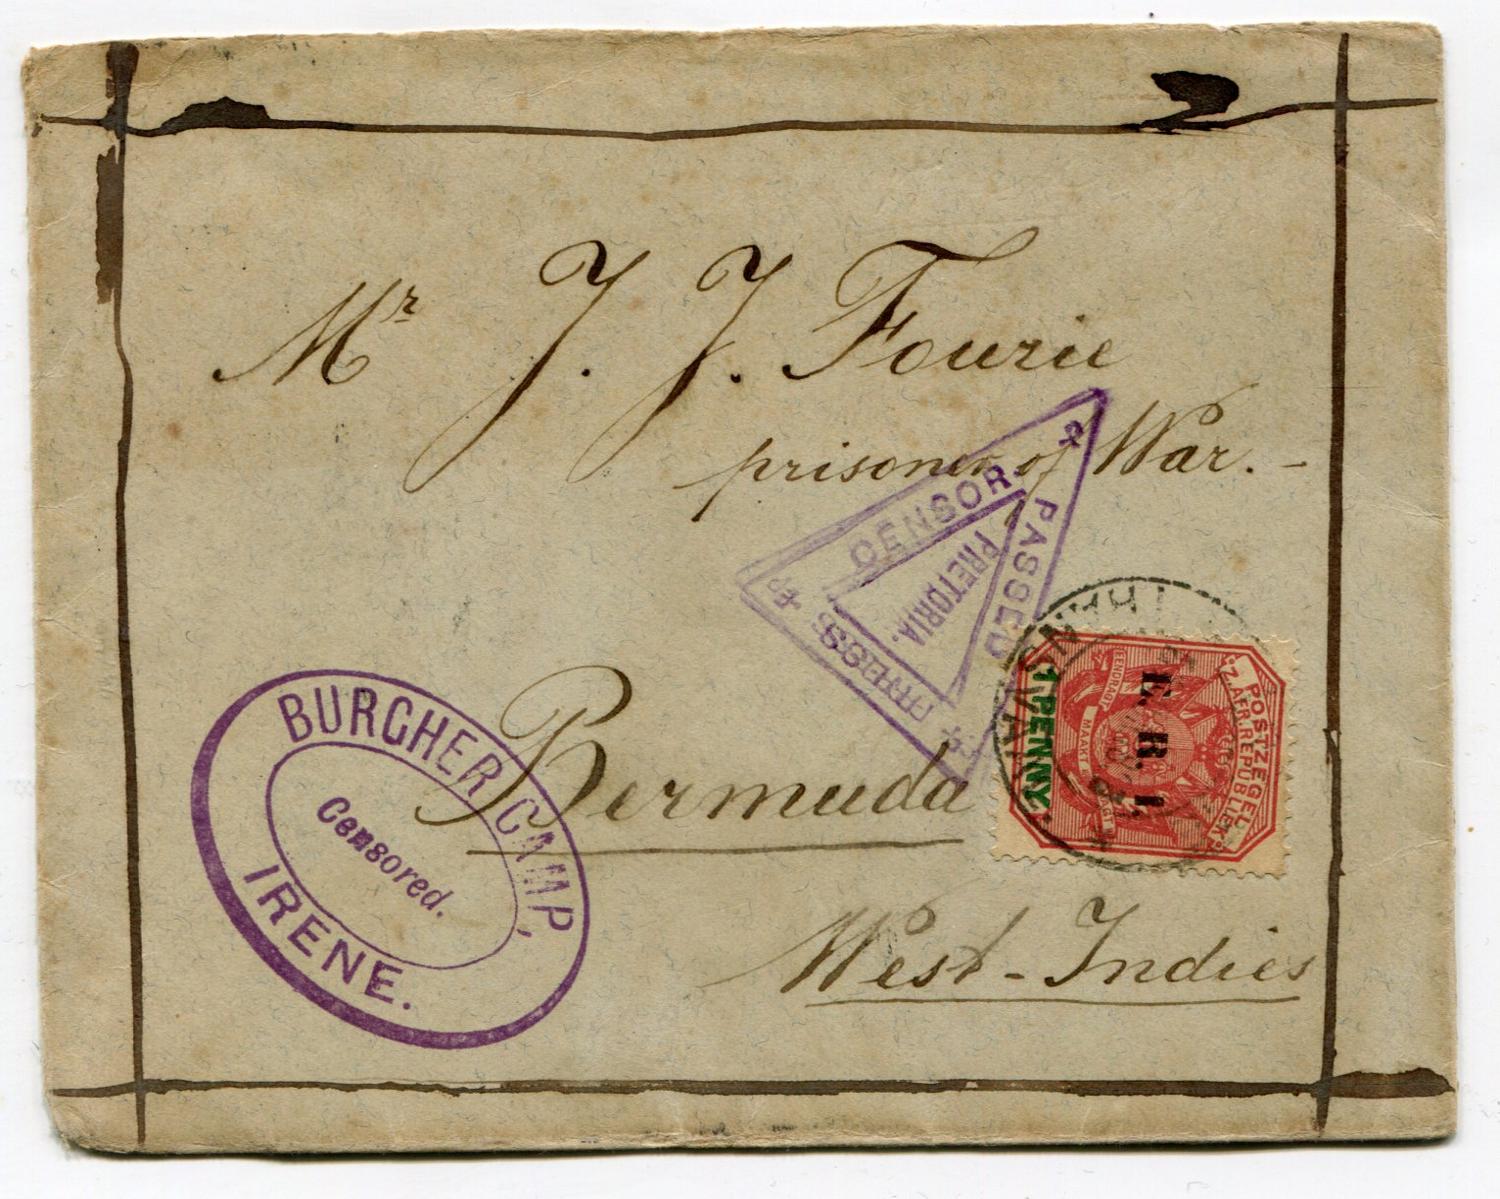 Mr J. J. Fourie
prisoner of War. -
PASSED
CENSOR
PRETORIA.
Bermuda
West-Indies
BURGHER CAMP,
Censored.
IRENE.
POSTZEGEL
Z. AFR. REPUBLIEK
EENDRAGT MAAKT MAGT
E. R. I.
1 PENNY
TRANSVAAL